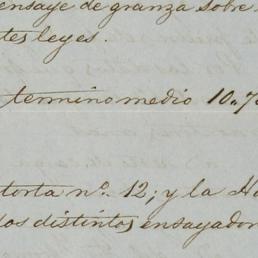 ensaye de granza sobre
tes leyes.
termino medio 10.7
torta nº. 12; y la Ha
los distintos ensayador